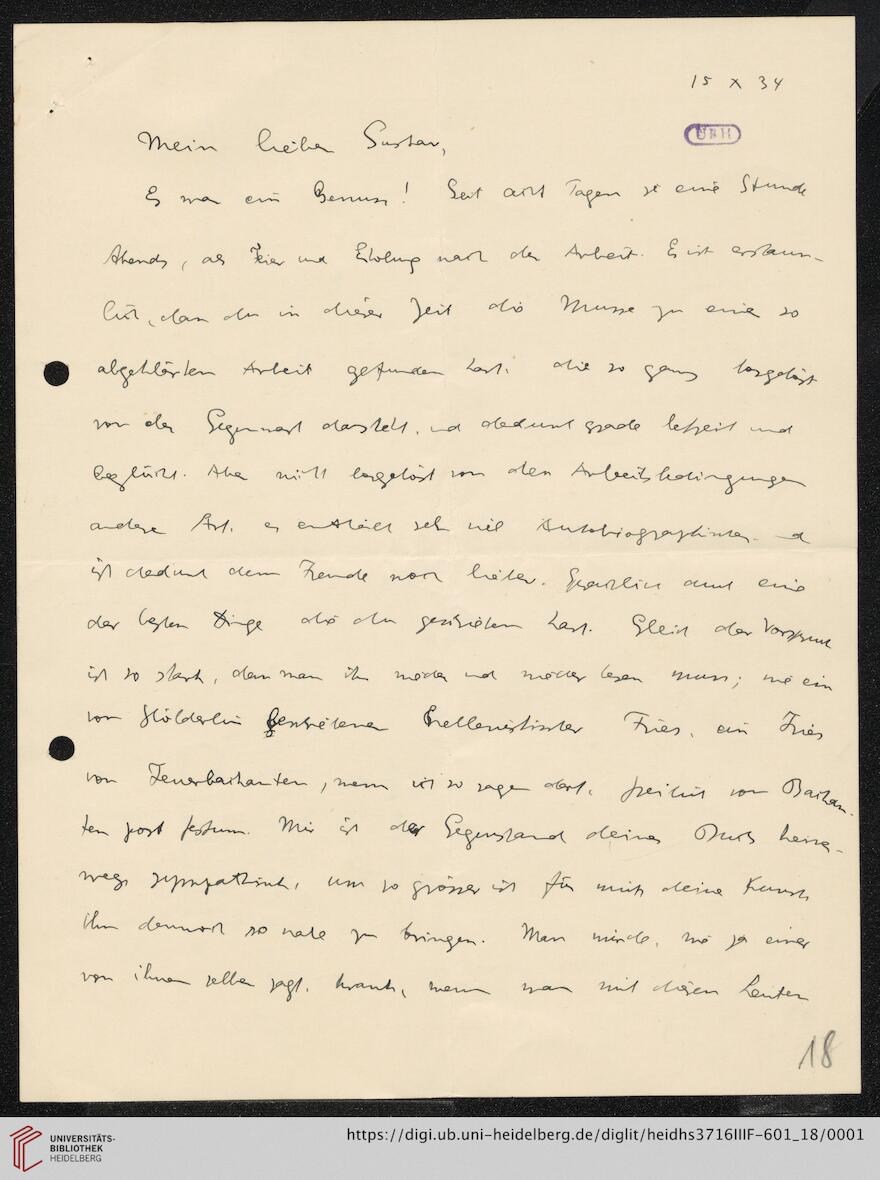 15 X 34
UBH
Mein lieber Gustav,
Es war ein Genuss! Seit acht Tagen je eine Stunde
Abends, als Feier und Erholung nach der Arbeit. Es ist erstaun-
lich, dass du in dieser Zeit die Musse zu einer so
abgeklärten Arbeit gefunden hast, die so ganz losgelöst
von der Gegenwart dasteht, und dadurch grade befreit und
beglückt. Aber nicht losgelöst von den Arbeitsbedingungen
andrer Art, es enthält sehr viel Autobiographisches und
ist dadurch dem Freunde noch lieber. Sprachlich auch eins
der besten Dinge die du geschrieben hast. Gleich der Vorspruch
ist so stark, dass man ihn wieder und wieder lesen muss; wie ein
von Hölderlin beschriebener hellenistischer Fries, ein Fries
von Feuerbachanten, wenn ich so sagen darf, freilich von Bachan-
ten post festum. Mir ist der Gegenstand deines Buchs keines-
wegs sympathisch, um so grösser ist für mich deine Kunst
ihn dennoch so nahe zu bringen. Man würde, wie ja einer
von ihnen selber sagt, krank, wenn man mit diesen Leuten
18
UNIVERSITÄTS-
BIBLIOTHEK
HEIDELBERG
https://digi.ub.uni-heidelberg.de/diglit/heidhs3716IIIF-601_18/0001